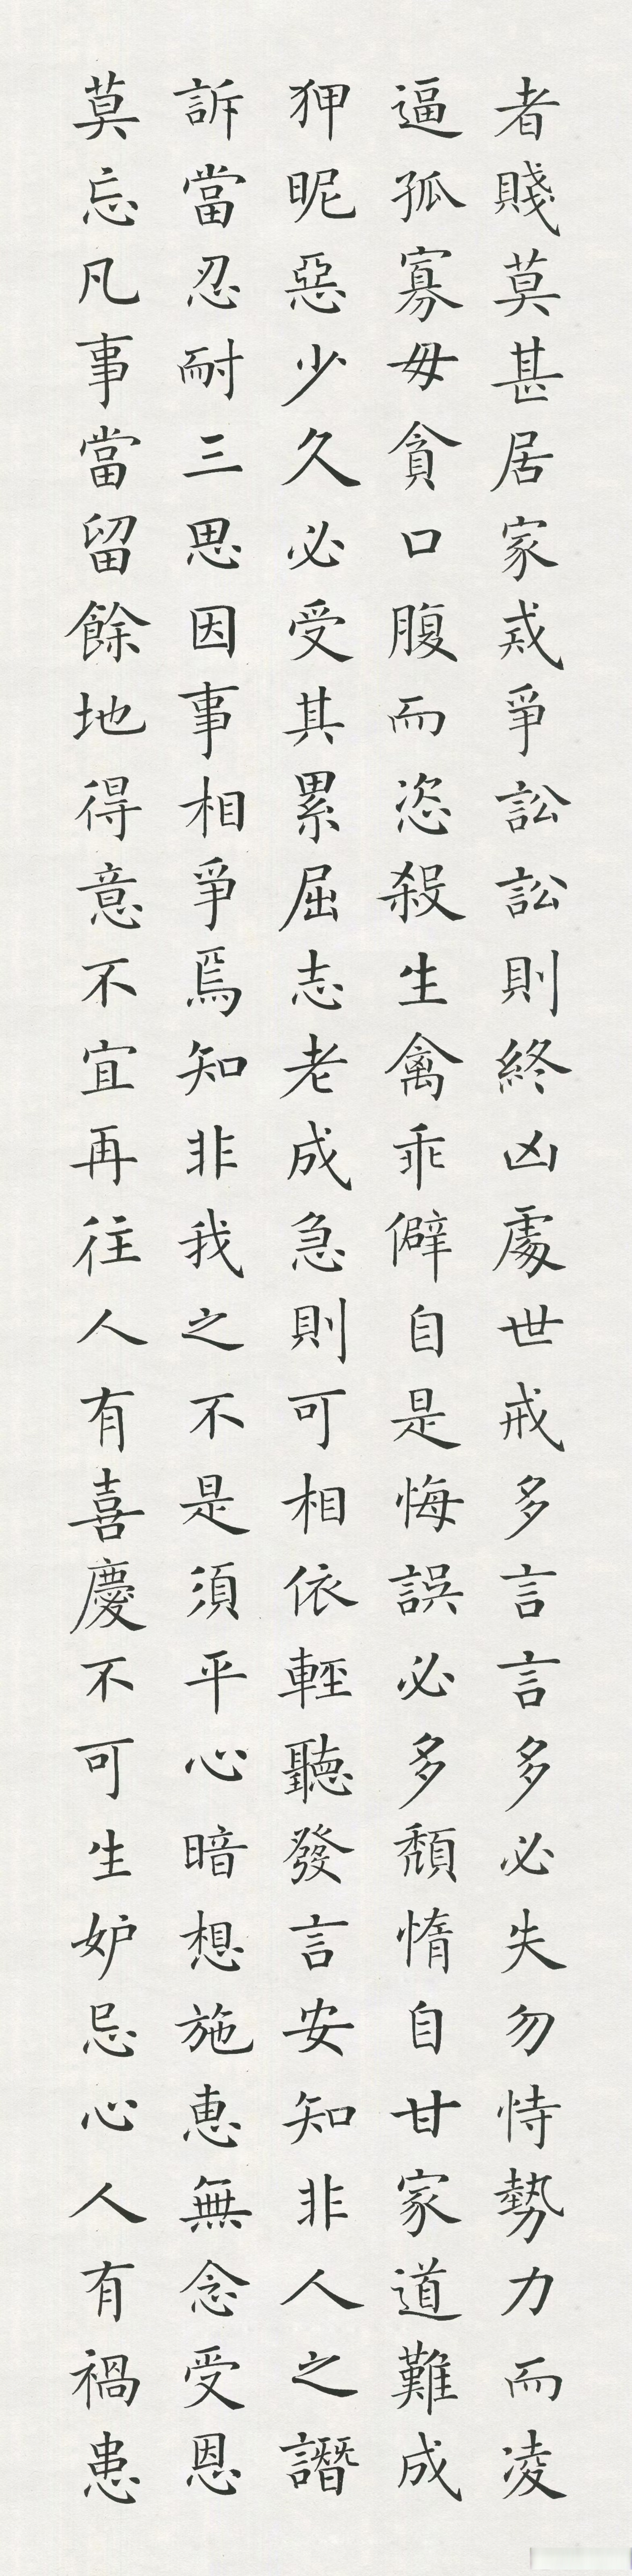 者賤莫甚居家戒爭訟訟則終凶處世戒多言言多必失勿恃勢力而凌
逼孤寡毋貪口腹而恣殺生禽乖僻自是悔誤必多頹惰自甘家道難成
狎昵惡少久必受其累屈志老成急則可相依輕聽發言安知非人之譖
訴當忍耐三思因事相爭焉知非我之不是須平心暗想施惠無念受恩
莫忘凡事當留餘地得意不宜再往人有喜慶不可生妒忌心人有禍患